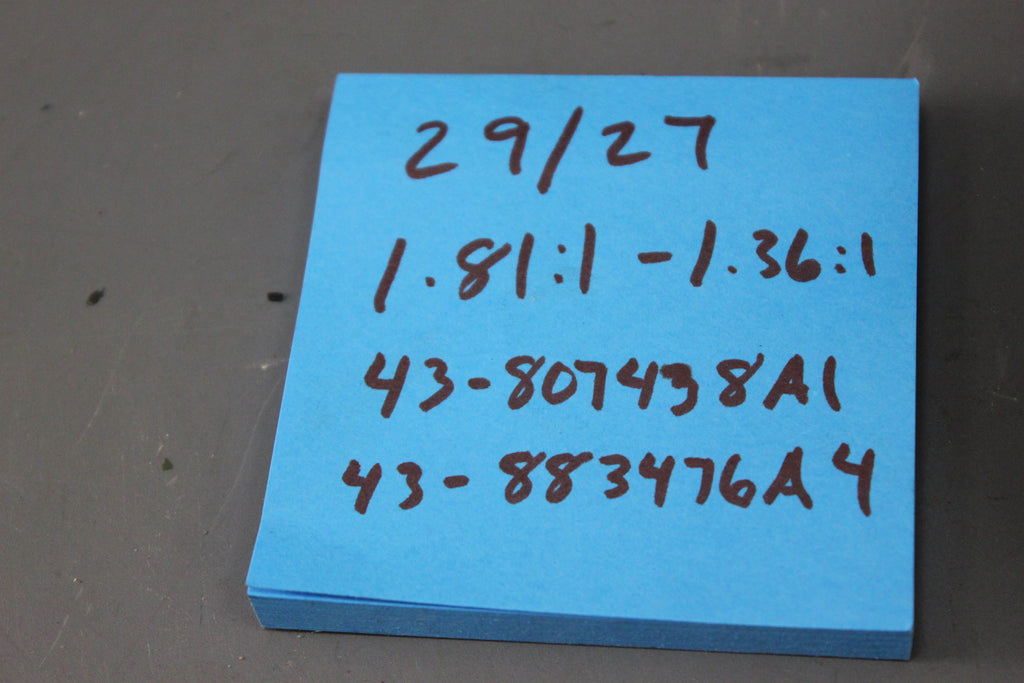 29/27
1.81:1 - 1.36:1
43-807438A1
43-883476A4